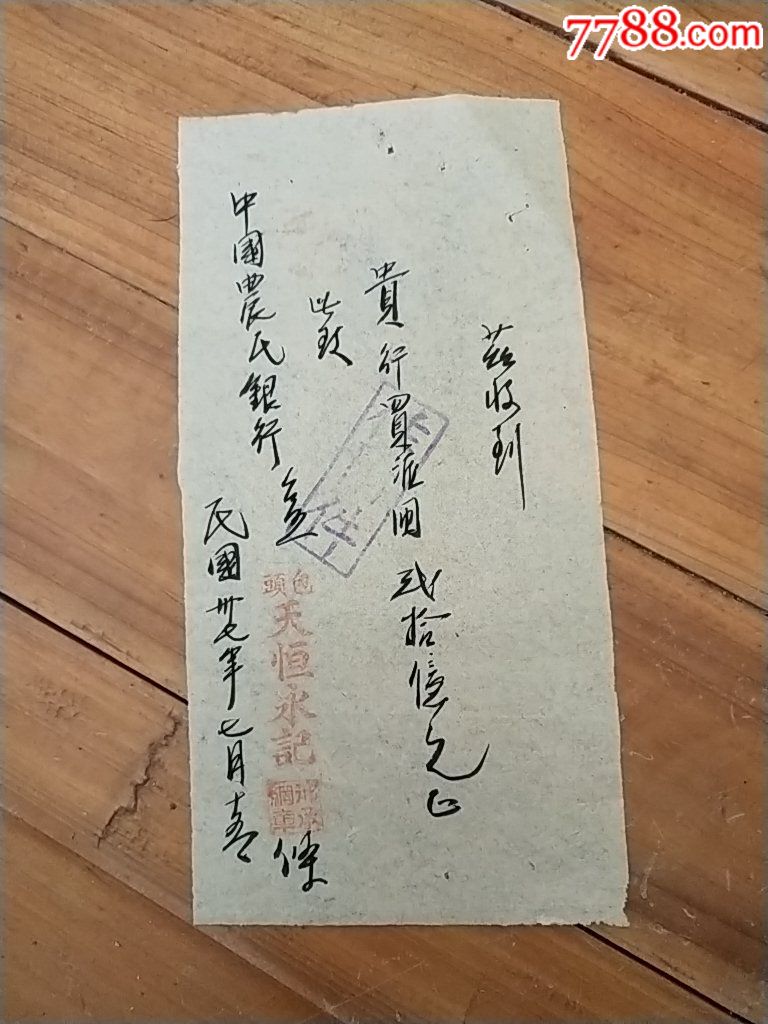 7788.com
茲收到
貴行買匯國幣 弍拾億元正
此致
中國農民銀行 台
包頭
天恒永記
條
民國卅七年七月十五日